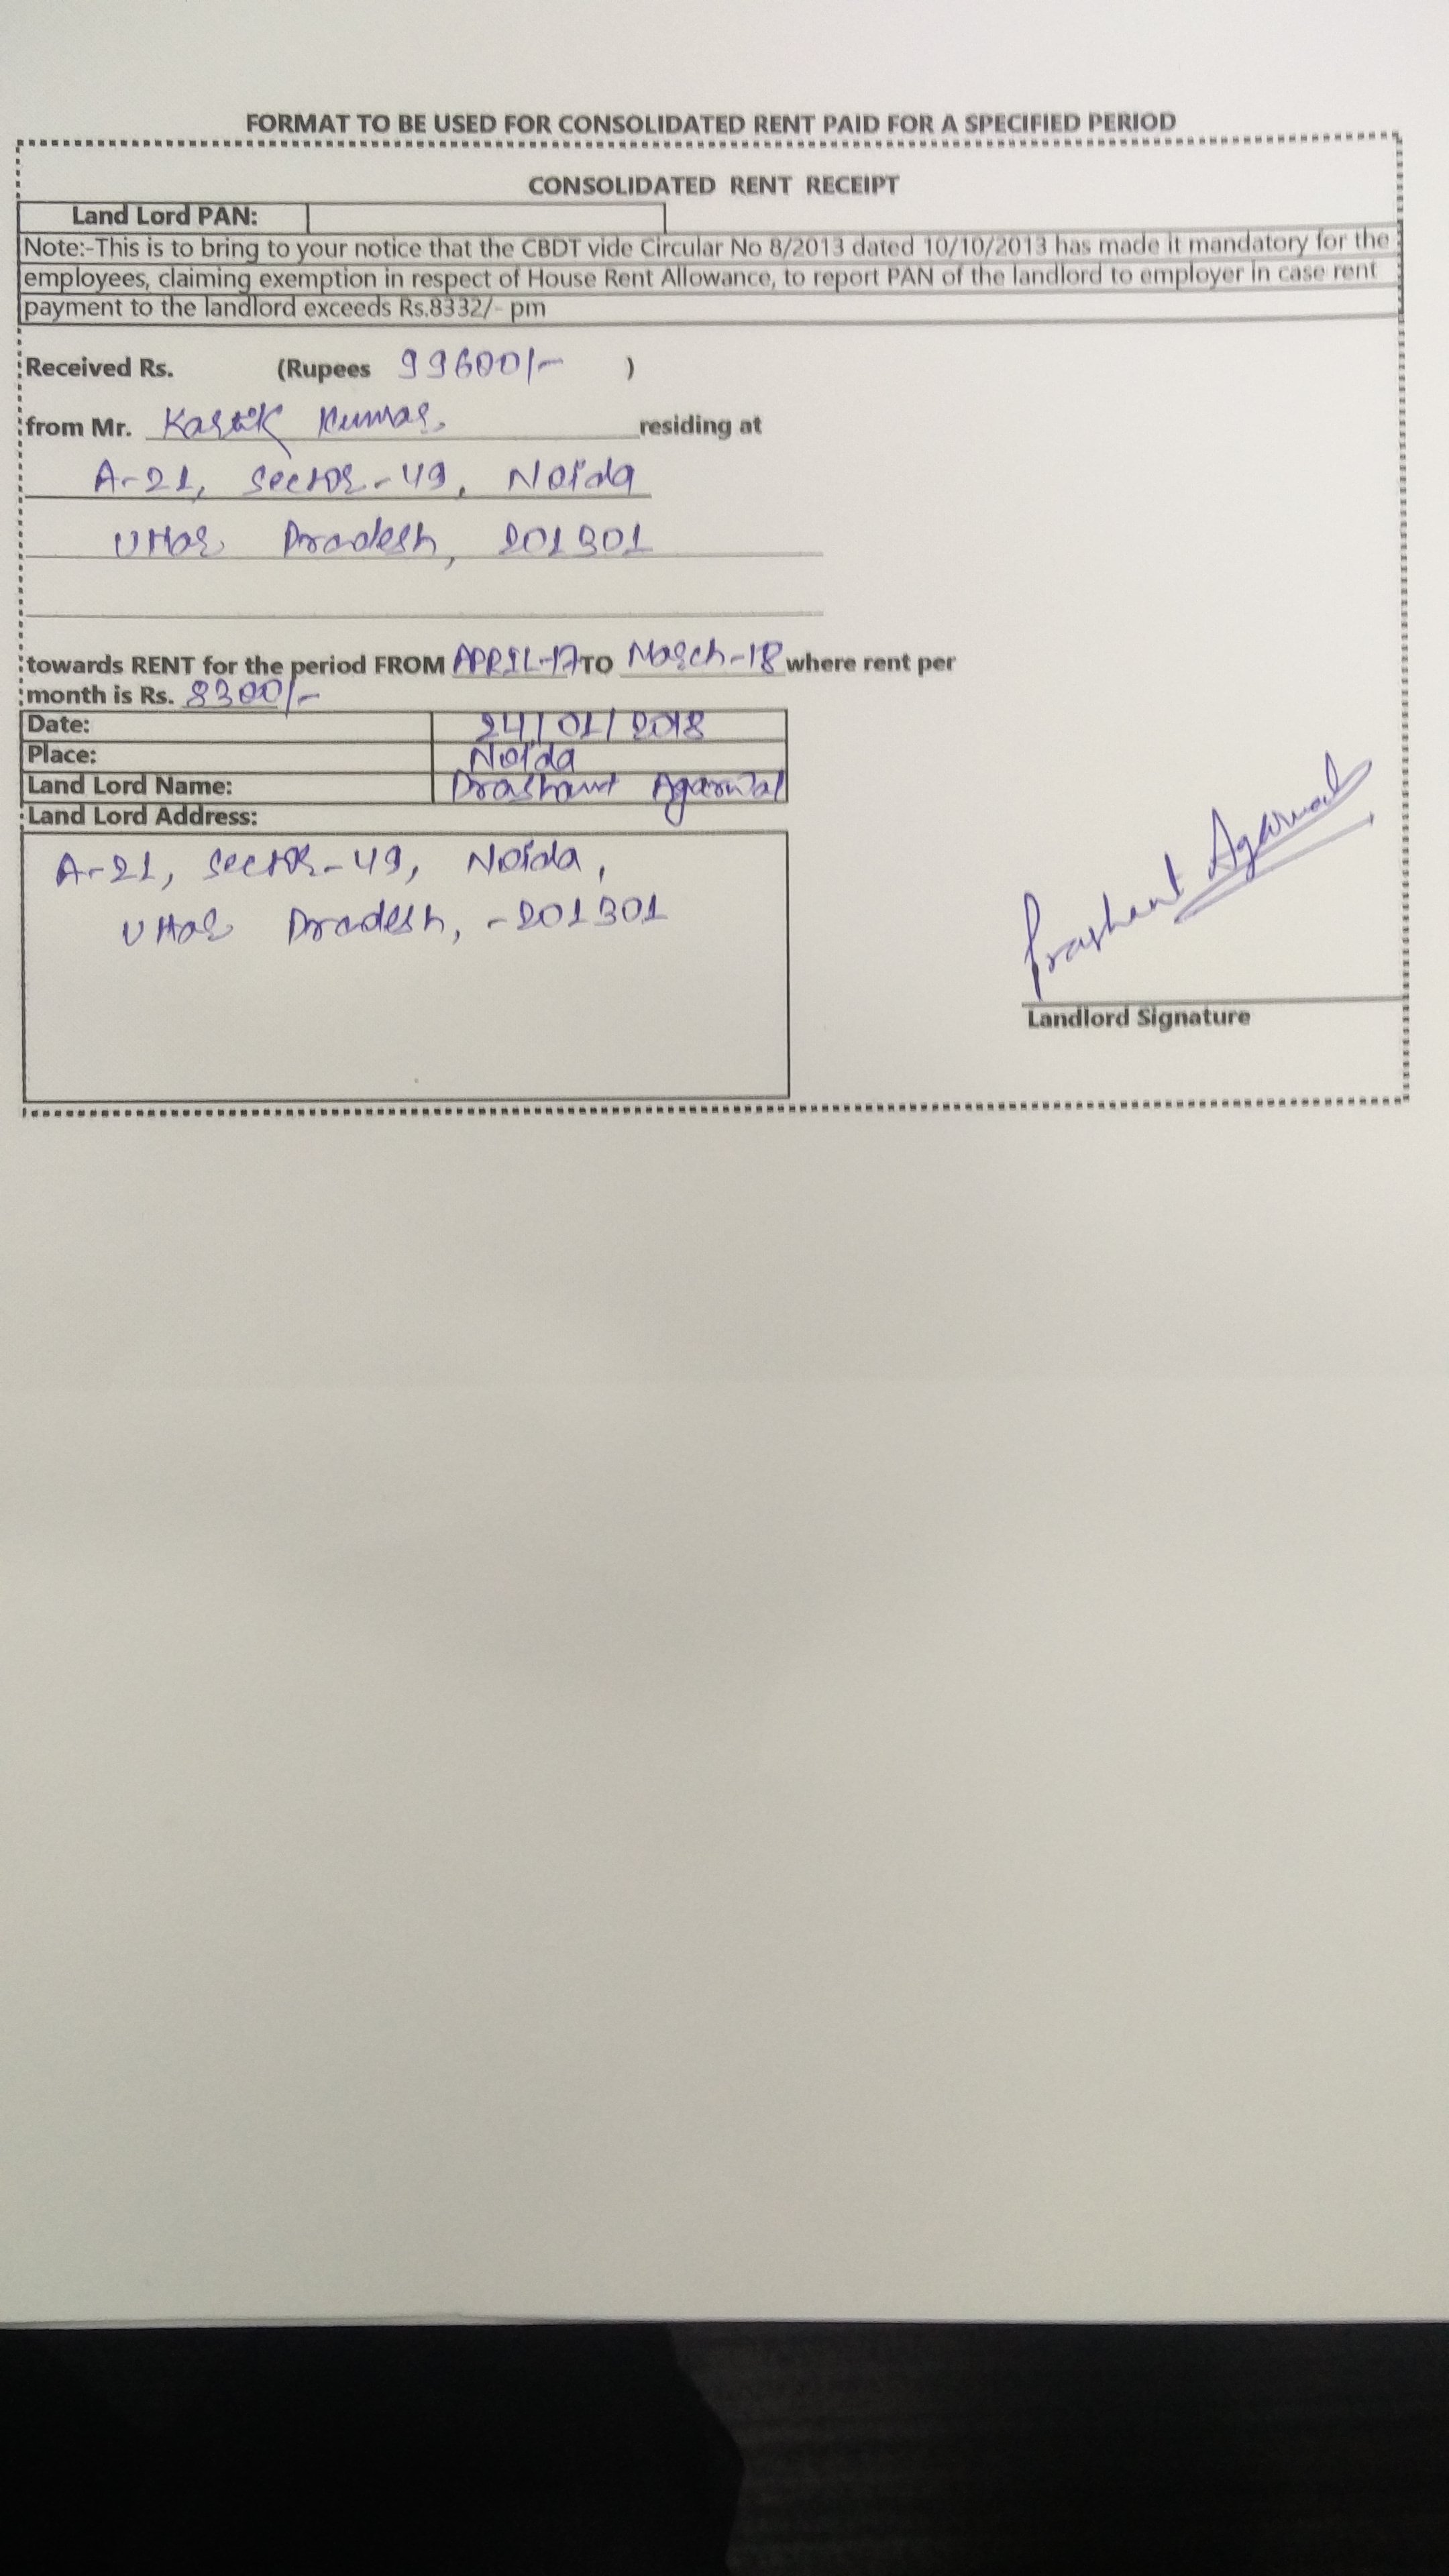 FORMAT TO BE USED FOR CONSOLIDATED RENT PAID FOR A SPECIFIED PERIOD
CONSOLIDATED RENT RECEIPT
Land Lord PAN:
Note:-This is to bring to your notice that the CBDT vide Circular No 8/2013 dated 10/10/2013 has made it mandatory for the
employees, claiming exemption in respect of House Rent Allowance, to report PAN of the landlord to employer in case rent
payment to the landlord exceeds Rs.8332/- pm
Received Rs. (Rupees 99600/- )
from Mr. Kartik Kumar. residing at
A-21, Sector-49, Noida
Uttar Pradesh, 201301
towards RENT for the period FROM APRIL-17 TO March-18 where rent per
month is Rs. 8300/-
Date: 24/01/2018
Place: Noida
Land Lord Name: Prashant Agarwal
Land Lord Address:
A-21, Sector-49, Noida,
Uttar Pradesh, -201301
Prashant Agarwal
Landlord Signature